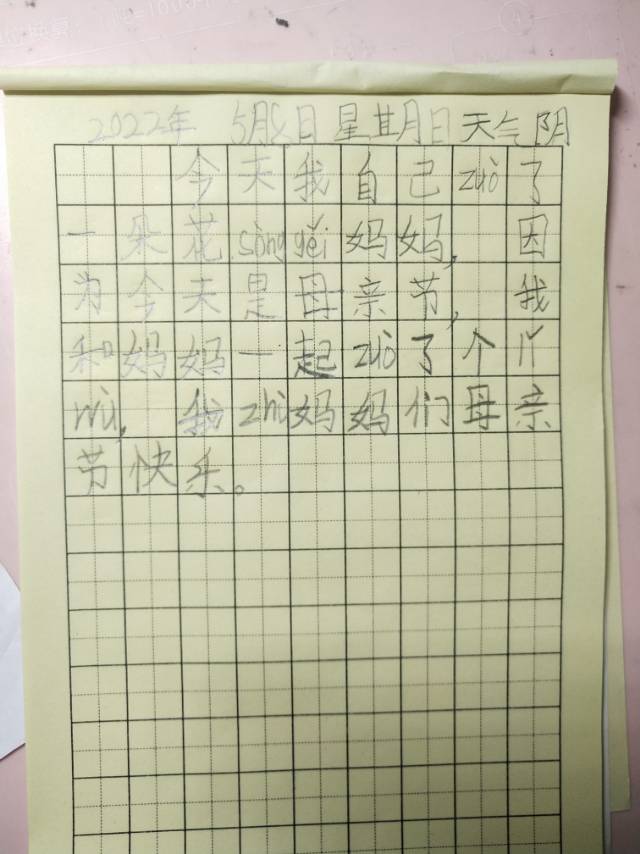 2022年 5月8日 星期日 天气阴
今天我自己zuò了
一朵花sònggěi妈妈,因
为今天是母亲节,我
和妈妈一起zuò了个
wù,我zhù妈妈们母亲
节快乐。